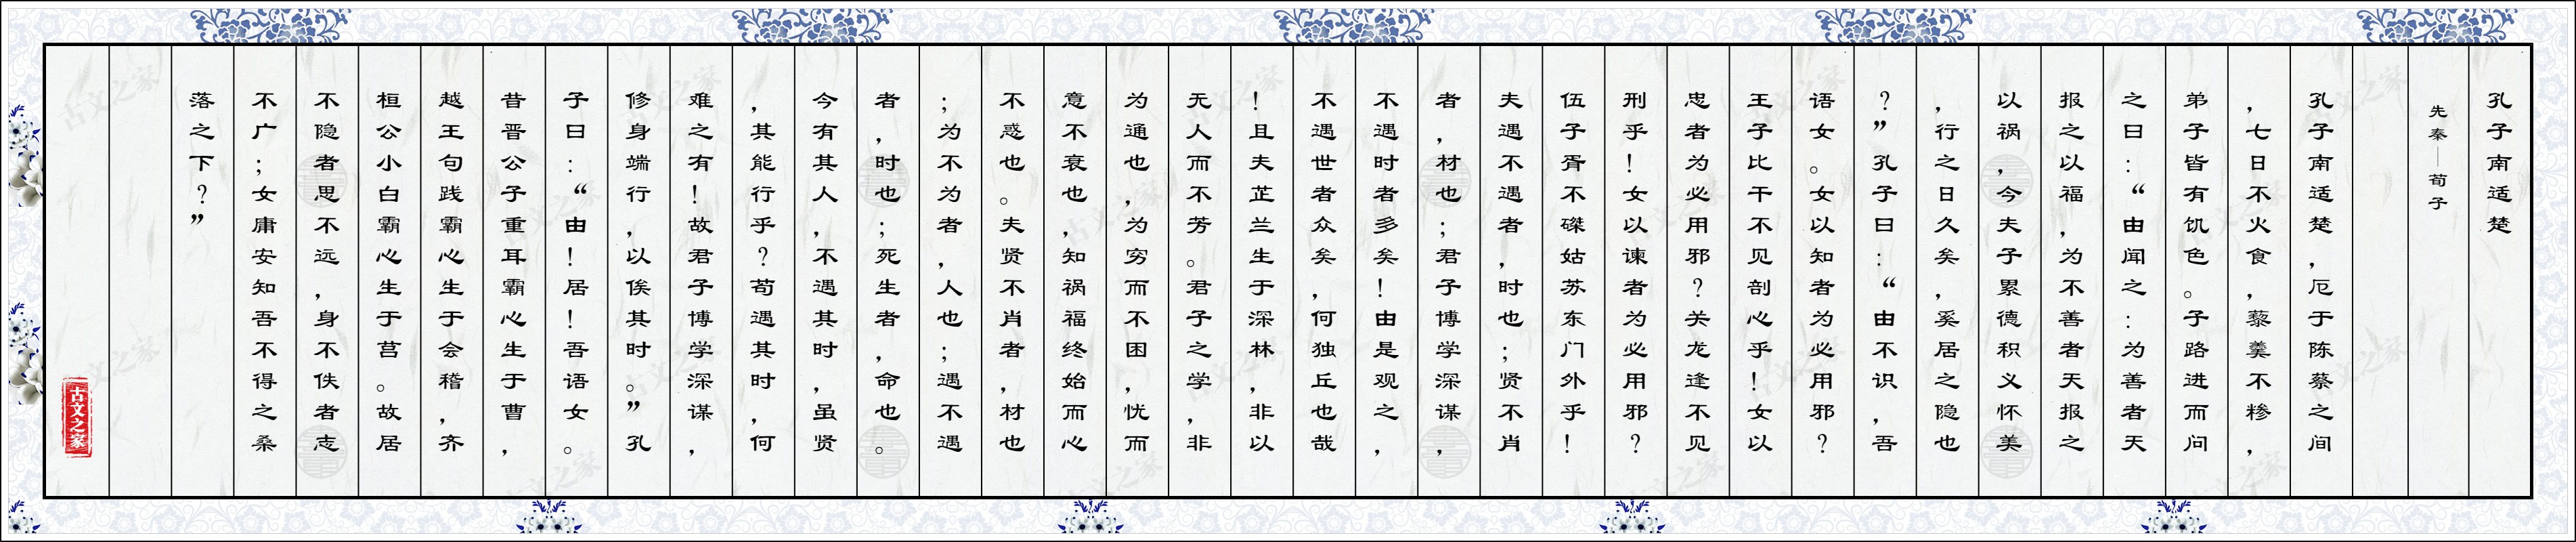 孔子南适楚
先秦—荀子
孔子南适楚，厄于陈蔡之间
，七日不火食，藜羹不糁，
弟子皆有饥色。子路进而问
之曰：“由闻之：为善者天
报之以福，为不善者天报之
以祸，今夫子累德积义怀美
，行之日久矣，奚居之隐也
？”孔子曰：“由不识，吾
语女。女以知者为必用邪？
王子比干不见剖心乎！女以
忠者为必用邪？关龙逢不见
刑乎！女以谏者为必用邪？
伍子胥不磔姑苏东门外乎！
夫遇不遇者，时也；贤不肖
者，材也；君子博学深谋，
不遇时者多矣！由是观之，
不遇世者众矣，何独丘也哉
！且夫芷兰生于深林，非以
无人而不芳。君子之学，非
为通也，为穷而不困，忧而
意不衰也，知祸福终始而心
不惑也。夫贤不肖者，材也
；为不为者，人也；遇不遇
者，时也；死生者，命也。
今有其人，不遇其时，虽贤
，其能行乎？苟遇其时，何
难之有！故君子博学深谋，
修身端行，以俟其时。”孔
子曰：“由！居！吾语女。
昔晋公子重耳霸心生于曹，
越王句践霸心生于会稽，齐
桓公小白霸心生于莒。故居
不隐者思不远，身不佚者志
不广；女庸安知吾不得之桑
落之下？”
古文之家